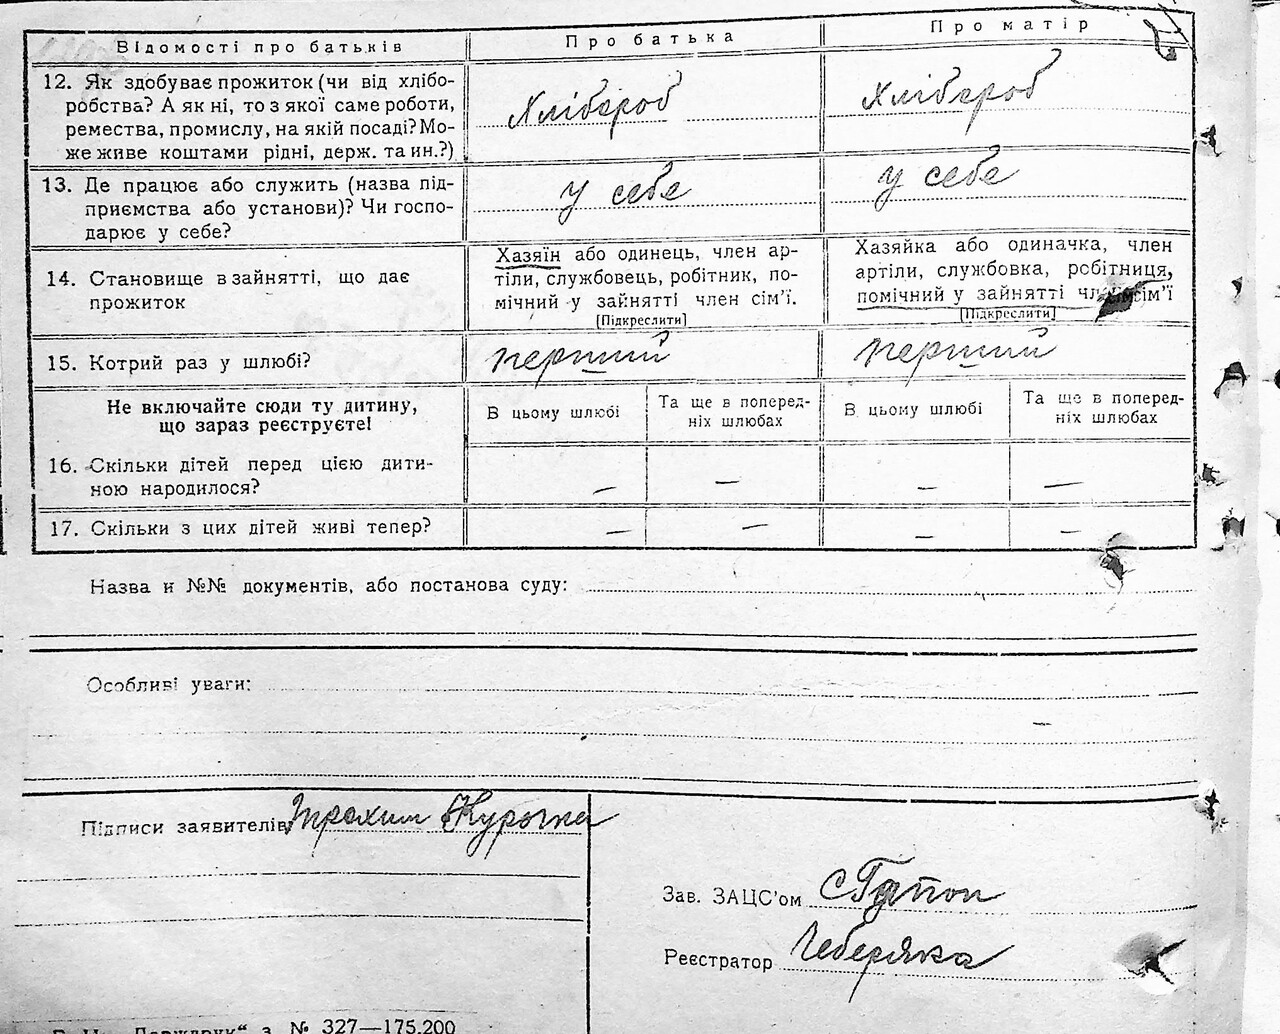 Відомості про батьків
Про батька
Про матір
12. Як здобуває прожиток (чи від хлібо-
робства? А як ні, то з якої саме роботи,
ремества, промислу, на якій посаді? Мо-
же живе коштами рідні, держ. та ин.?)
Хлібороб
Хлібороб
13. Де працює або служить (назва під-
приємства або установи)? Чи госпо-
дарює у себе?
у себе
у себе
14. Становище в зайнятті, що дає
прожиток
Хазяїн або одинець, член ар-
тіли, службовець, робітник, по-
мічний у зайнятті член сім'ї.
[Підкреслити]
Хазяйка або одиначка, член
артіли, службовка, робітниця,
помічний у зайнятті член сім'ї
[Підкреслити]
15. Котрий раз у шлюбі?
перший
перший
Не включайте сюди ту дитину,
що зараз реєструєте!
В цьому шлюбі
Та ще в поперед-
ніх шлюбах
В цьому шлюбі
Та ще в поперед-
ніх шлюбах
16. Скільки дітей перед цією дити-
ною народилося?
— — — —
17. Скільки з цих дітей живі тепер?
— — — —
Назва и №№ документів, або постанова суду:
Особливі уваги:
—
Підписи заявителів Трохим
Зав. ЗАЦС'ом
Реєстратор Чеберяка
Держдрук“ з. № 327—175.200